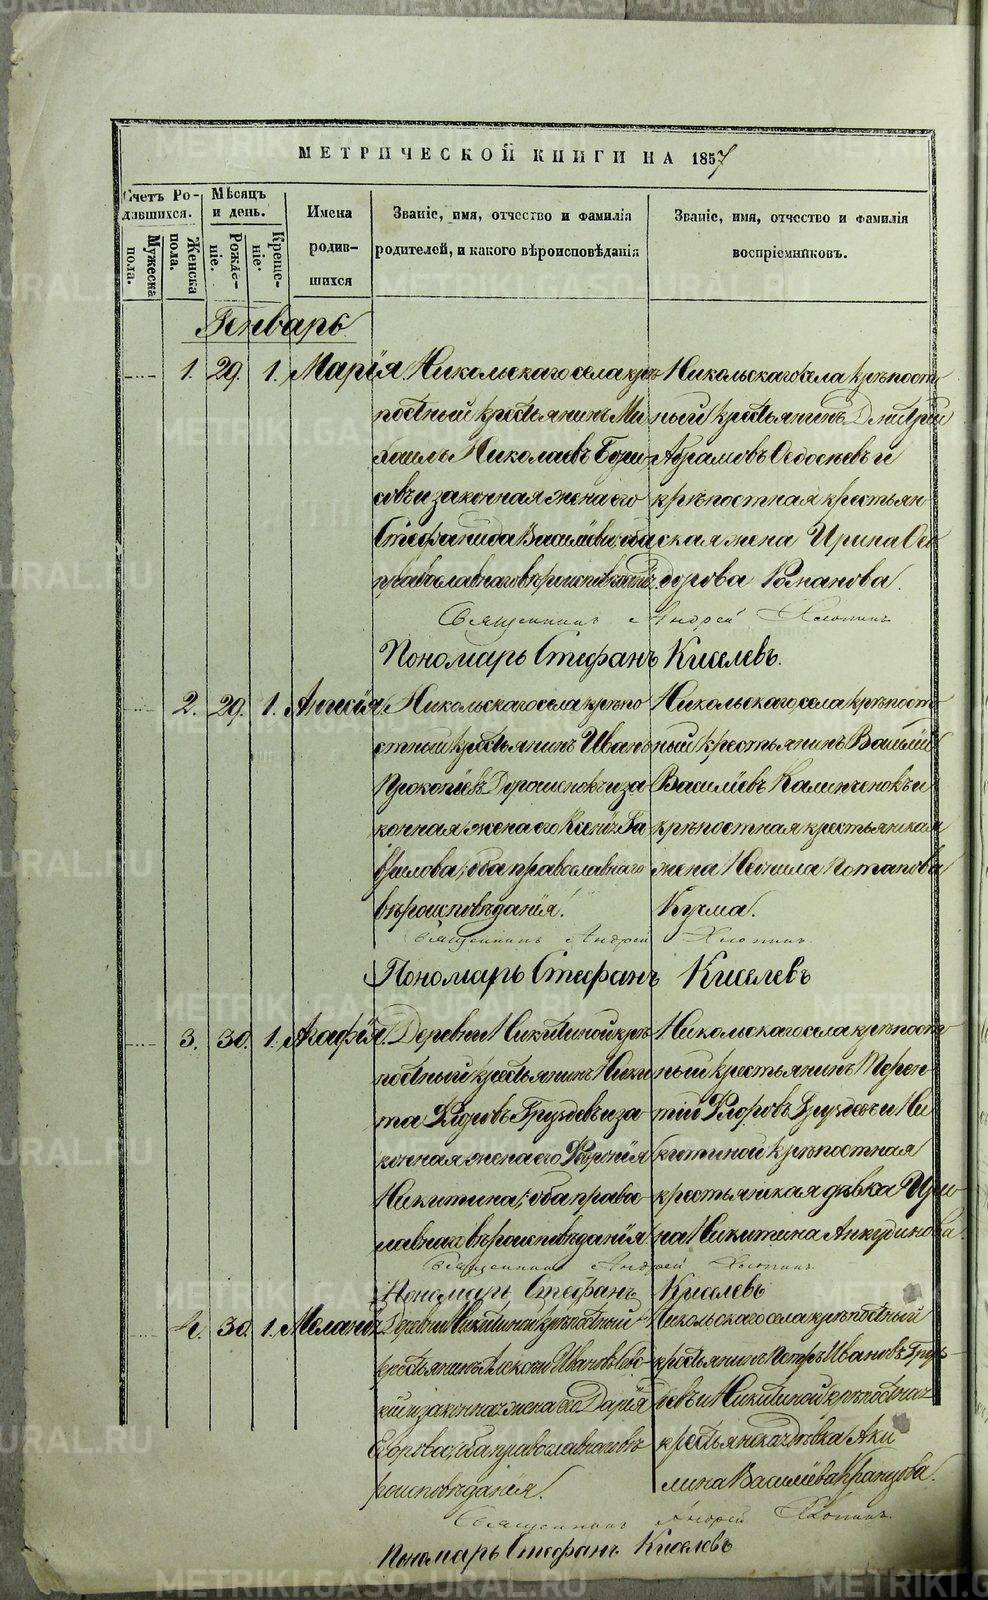 МЕТРИЧЕСКОЙ КНИГИ НА 1857
Счетъ Ро-
дившихся.
Мѣсяцъ
и день.
Имена
родив-
шихся
Званіе, имя, отчество и фамилія
родителей, и какого вѣроисповѣданія
Званіе, имя, отчество и фамилія
воспріемниковъ.
Мужеска
пола.
Женска
пола.
Рожде-
ніе.
Креще-
ніе.
Генварь
1. 29. 1. Марія. Никольскаго села крѣ-
постный крестьянинъ Ми
хаилъ Николаевъ Бори
совъ и законная жена его
Стефанида Васильева; оба
православнаго вѣроисповѣданія.
Никольскаго села крѣпост
ный крестьянинъ Дмитрій
Абрамовъ Ѳедосѣевъ и
крѣпостная крестьян
ская жена Ирина Ѳео
дорова Романова.
Священникъ Андрей
Пономарь Стефанъ Киселевъ.
2. 29. 1. Никольскаго села крѣпо
стный крестьянинъ Иванъ
Прокопіевъ и за
конная жена его Ксенія Га
врилова; оба православнаго
вѣроисповѣданія.
Никольскаго села крѣпост
ный крестьянинъ Василій
Василіевъ и
крѣпостная крестьянская
жена Неонила Потапова
Кузма.
Священникъ Андрей
Пономарь Стефанъ Киселевъ
3. 30. 1. Агафія. Деревни Никитиной крѣ
постный крестьянинъ Ники
та Ѳедоровъ Груздевъ и за
конная жена его
Никитина; оба право
славнаго вѣроисповѣданія.
Никольскаго села крѣпост
ный крестьянинъ Терен-
тій Ѳедоровъ Груздевъ и Ни
китиной крѣпостная
крестьянская дѣвка Ири-
на Никитина Анкудинова.
Священникъ Андрей
Пономарь Стефанъ Киселевъ
4. 30. 1. Меланія Деревни Никитиной крѣпостный
крестьянинъ Алексѣй Ивановъ
и законная жена его Дарія
Егорова; оба православнаго вѣ
роисповѣданія.
Никольскаго села крѣпостный
крестьянинъ Петръ Ивановъ Груз-
девъ и Никитиной крѣпостная
крестьянская дѣвка Аки
лина Василіева
Священникъ Андрей
Пономарь Стефанъ Киселевъ
METRIKI.GASO-URAL.RU